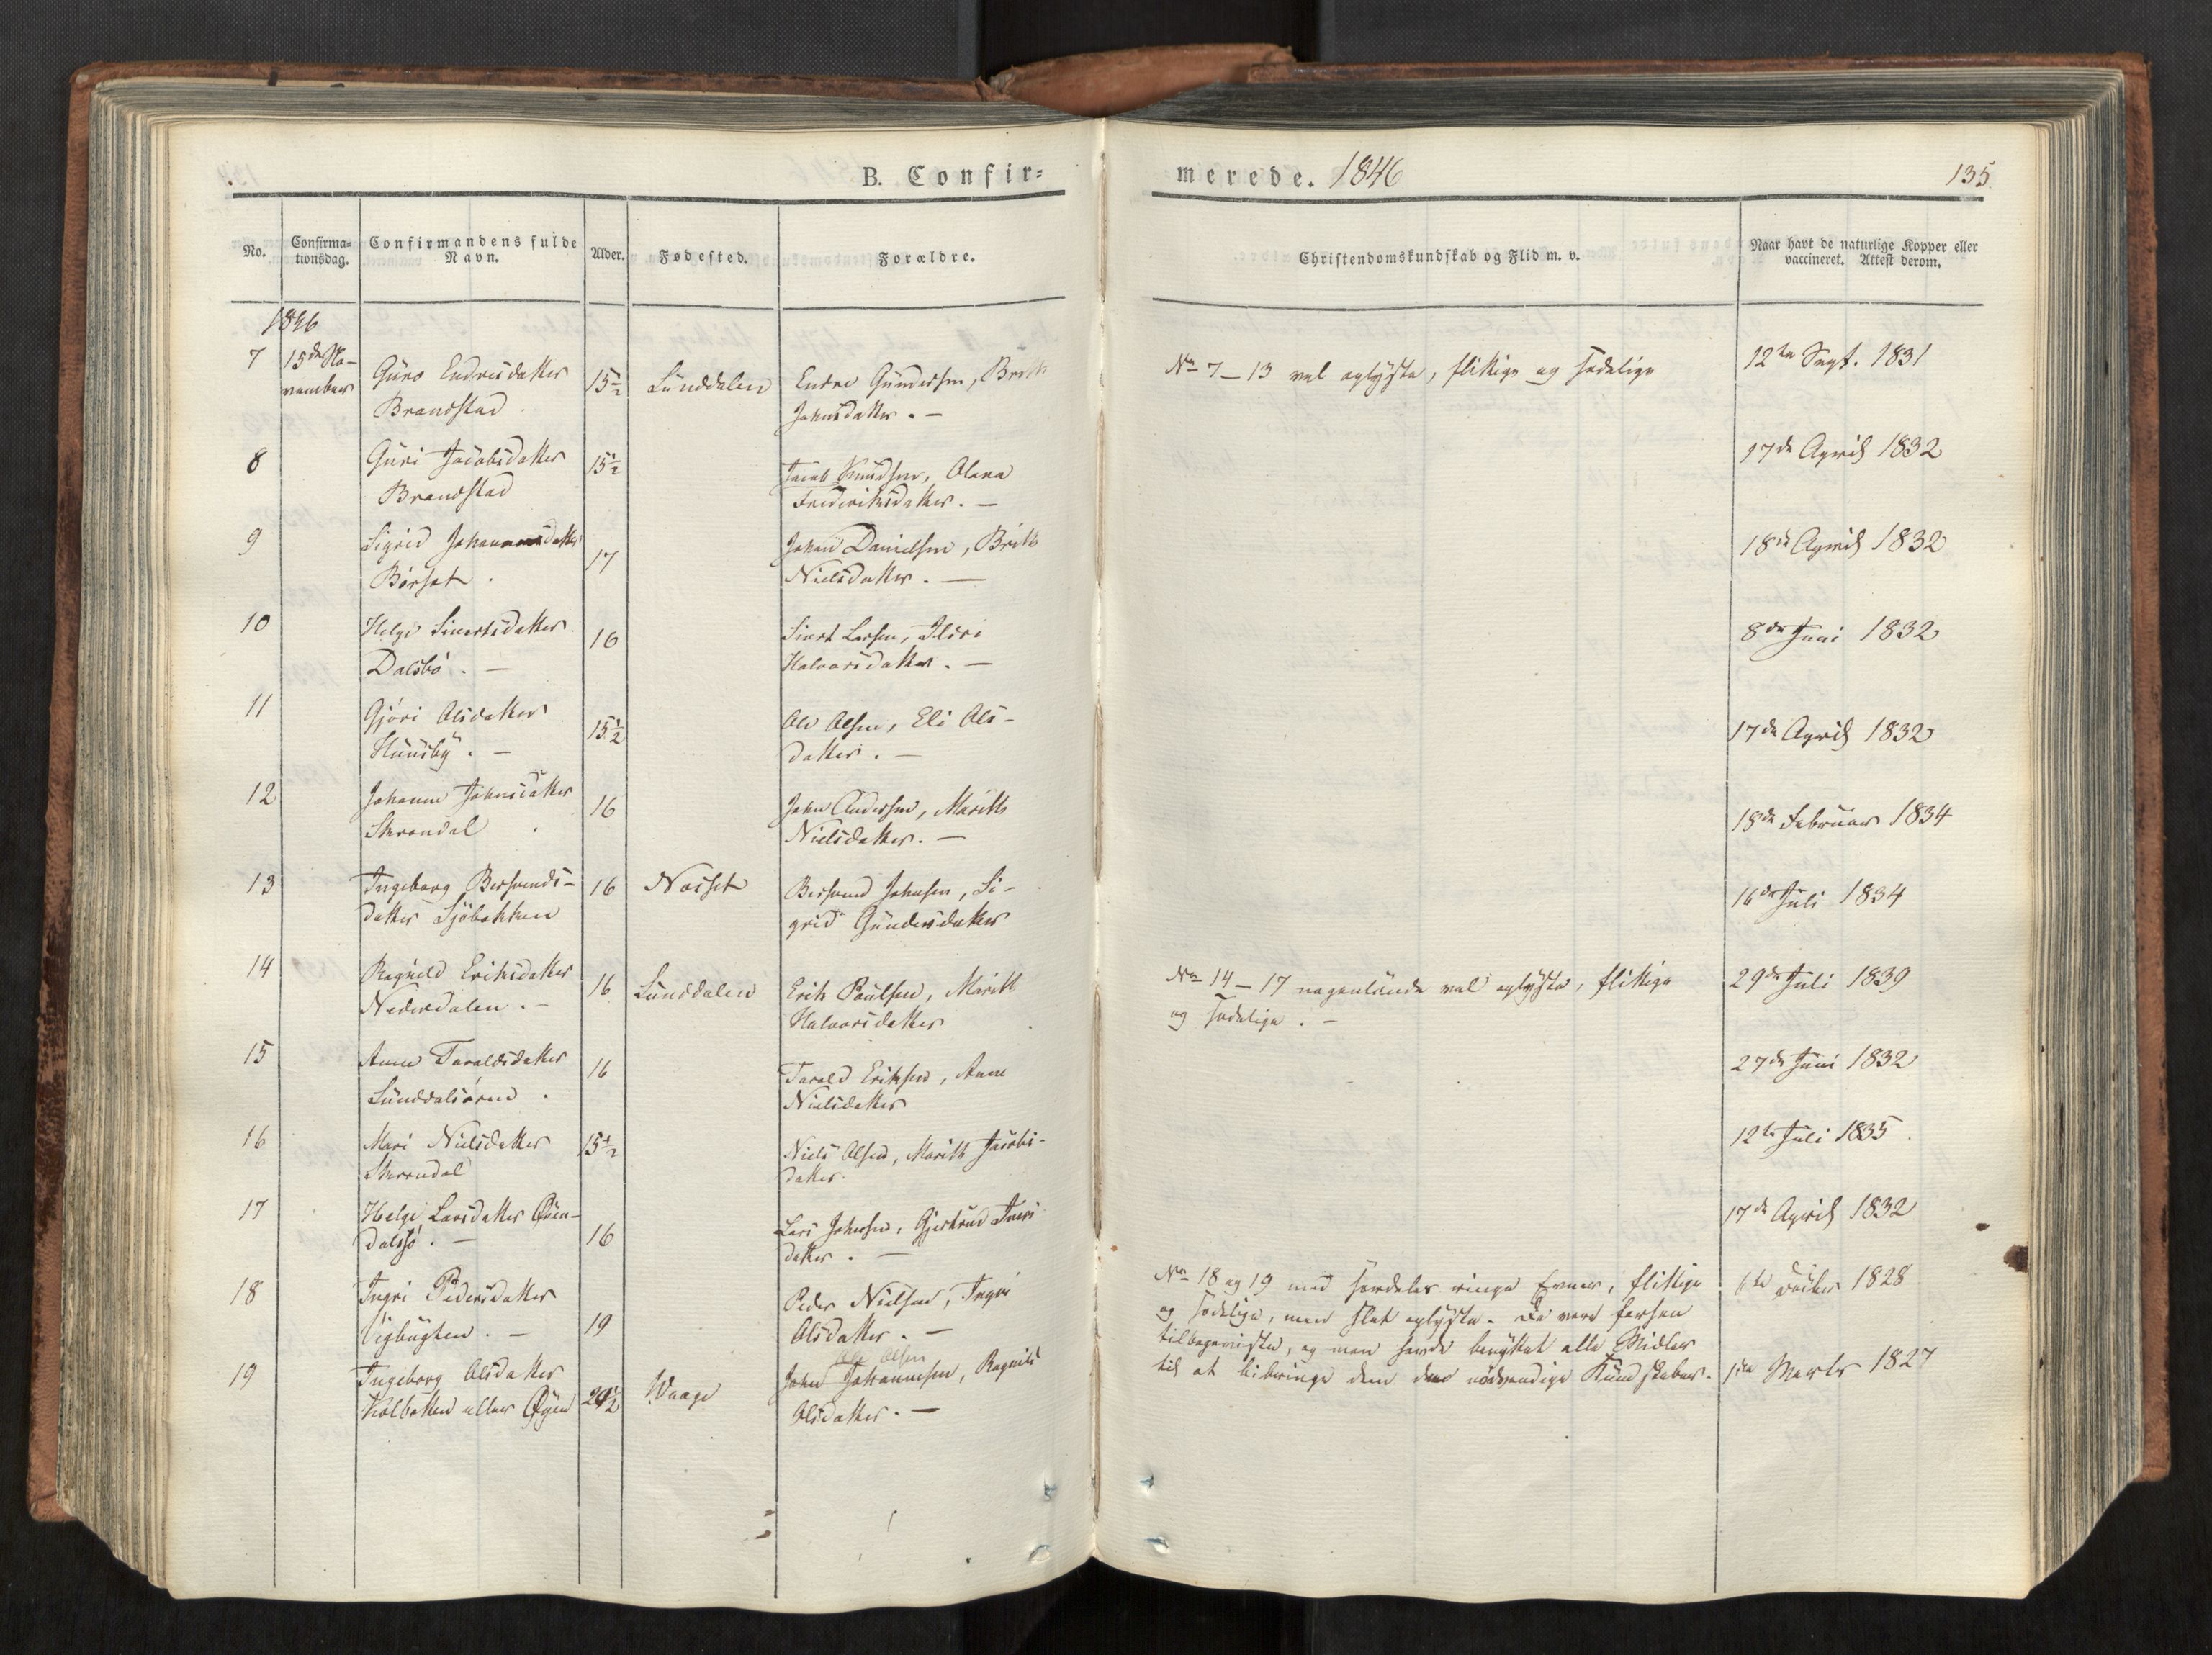 B. Confir=
merede. 1846
135
No.
Confirma=
tionsdag.
Confirmandens fulde
Navn.
Alder.
Fødested.
Forældre.
Christendomskundskab og Flid m. v.
Naar havt de naturlige Kopper eller
vaccineret. Attest derom.
1846
7 15de No-
vember
Guro Endresdatter
Brandstad
15½
Sunddalen
Endre Gundersen, Brith
Johnsdatter. —
No 7–13 vel oplyste, flittige og sædelige
12te Sept. 1831
8
Guri Jacobsdatter
Brandstad
15½
Jacob Knudsen, Olava
Frederiksdatter. —
17de April 1832
9
Sigrid Johansdatter
Børset
17
Johan Danielsen, Brith
Nielsdatter. —
18de April 1832
10
Helge Sivertsdatter
Dalsbø. —
16
Sivert Larsen,
Halvorsdatter. —
8de Juni 1832
11
Gjøri Olsdatter
Huusby. —
15½
Ole Olsen, Eli Ols-
datter. —
17de April 1832
12
Johanne Johnsdatter
Skrondal
16
John Andersen, Marith
Nielsdatter. —
18de Februar 1834
13
Ingeborg Bersvends-
datter Sjøbakken
16
Næsset
Bersvend Johnsen, Si-
grid Gundersdatter
16de Juli 1834
14
Ragnild Eriksdatter
Nederdalen. —
16
Sunddalen
Erik Paulsen, Marith
Halvorsdatter
No 14–17 nogenlunde vel oplyste, flittige
og sædelige. —
29de Juli 1839
15
Anne Taraldsdatter
Sunddalsøren
16
Tarald Eriksen, Anne
Nielsdatter
27de Juni 1832
16
Mari Nielsdatter
Skrondal
15½
Niels Olsen, Marith Jacobs-
datter
12te Juli 1835
17
Helge Larsdatter Øxen-
dalsø. —
16
Lars Johnsen, Gjertrud Ivers
datter. —
17de April 1832
18
Ingri Pedersdatter
Vigbugten. —
19
Peder Nielsen, Ingri
Olsdatter. —
No 18 og 19 med særdeles ringe Evner, flittige
og sædelige, men slet oplyste. De vare forhen
tilbageviste, og man havde benyttet alle Midler
til at bibringe dem den nødvendige Kundskaber.
6te 1828
19
Ingeborg Olsdatter
Kolbotten eller Øyen
20½
Waage
Ole Olsen
John Johannesen, Ragnild
Olsdatter. —
1ste Marts 1827